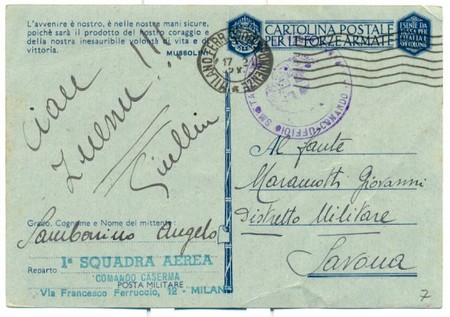 L'avvenire è nostro, è nelle nostre mani sicure,
poichè sarà il prodotto del nostro coraggio e
della nostra inesauribile volontà di vita e di
vittoria.
MUSSOLINI
CARTOLINA POSTALE
PER LE FORZE ARMATE
ESENTE DA
TASSA PER
L'ITALIA E
COLONIE
MILANO FERR
17 2
Ciao
Al fante
Maramotti Giovanni
Distretto Militare
Savona
Grado, Cognome e Nome del mittente
Sambarino Angelo
1ª SQUADRA AEREA
Reparto
COMANDO CASERMA
POSTA MILITARE
Via Francesco Ferruccio, 12 - MILAN
7